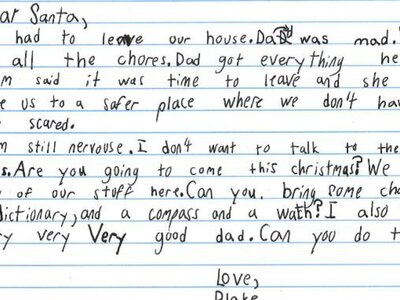 ar Santa,
had to leave our house. Dad was mad.
all the chores. Dad got everything he
m said it was time to leave and she
e us to a safer place where we don't hav
scared.
m still nervouse. I don't want to talk to the
s. Are you going to come this christmas? We
of our stuff here. Can you bring some cha
dictionary, and a compass and a wath? I also
ry very Very good dad. Can you do t
Love,
Blake